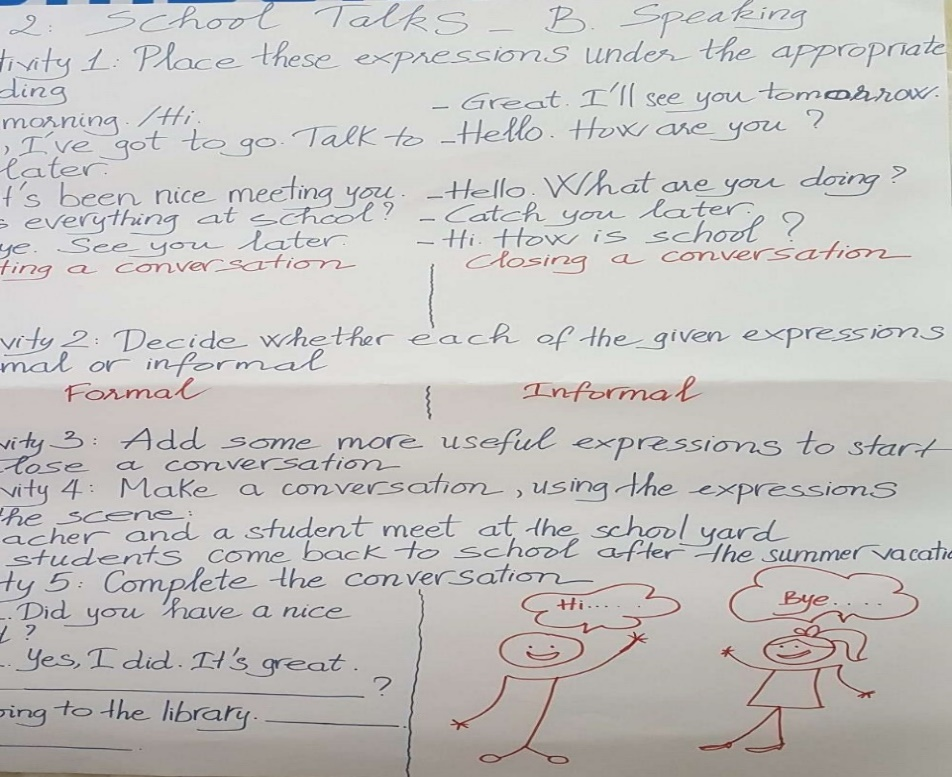 2: School Talks - B. Speaking
tivity 1: Place these expressions under the appropriate
ding
morning. /Hi. - Great. I'll see you tomorrow.
, I've got to go. Talk to - Hello. How are you ?
later.
t's been nice meeting you. - Hello. What are you doing ?
s everything at school? - Catch you later.
ye. See you later. - Hi. How is school ?
ting a conversation Closing a conversation
vity 2: Decide whether each of the given expressions
mal or informal
Formal Informal
vity 3: Add some more useful expressions to start
lose a conversation
vity 4: Make a conversation, using the expressions
the scene:
acher and a student meet at the school yard
students come back to school after the summer vacati
ty 5: Complete the conversation
.. Did you have a nice
?
.. Yes, I did. It's great.
____________________ ?
oing to the library. __________.
__________.
Hi.....
Bye.....